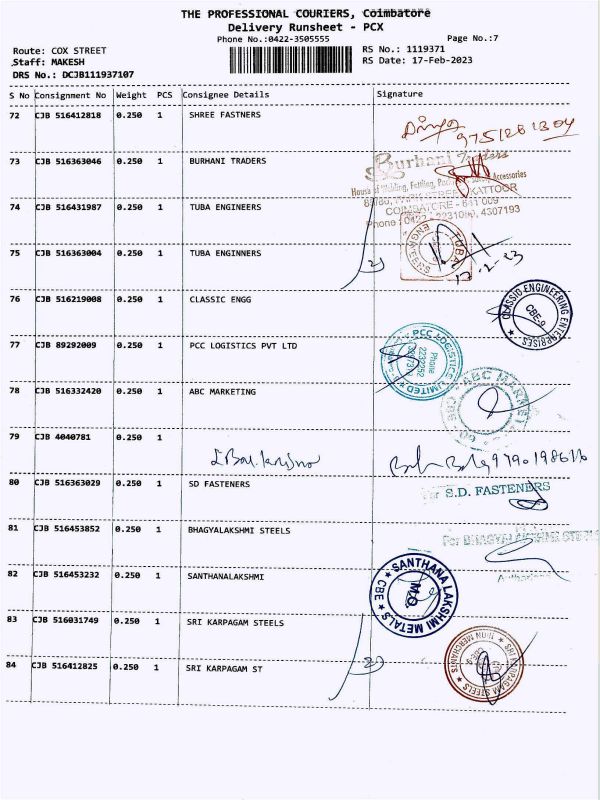 THE PROFESSIONAL COURIERS, Coimbatore
Delivery Runsheet - PCX
Phone No.:0422-3505555
Page No.:7
Route: COX STREET
RS No.: 1119371
Staff: MAKESH
RS Date: 17-Feb-2023
DRS No.: DCJB111937107
S No Consignment No Weight PCS Consignee Details Signature
72 CJB 516412818 0.250 1 SHREE FASTNERS
73 CJB 516363046 0.250 1 BURHANI TRADERS
Burhani Traders
House of Welding, Accessories
KATTOOR
COIMBATORE - 641 009
74 CJB 516431987 0.250 1 TUBA ENGINEERS
TUBA ENGINEERS
75 CJB 516363004 0.250 1 TUBA ENGINNERS
17-2-23
76 CJB 516219008 0.250 1 CLASSIC ENGG
CLASSIC ENGINEERING ENTERPRISES
CBE-9
77 CJB 89292009 0.250 1 PCC LOGISTICS PVT LTD
PCC LOGISTICS LIMITED
Phone
78 CJB 516332420 0.250 1 ABC MARKETING
ABC
79 CJB 4040781 0.250 1
80 CJB 516363029 0.250 1 SD FASTENERS
For S.D. FASTENERS
81 CJB 516453852 0.250 1 BHAGYALAKSHMI STEELS
For BHAGYALAKSHMI STEELS
82 CJB 516453232 0.250 1 SANTHANALAKSHMI
SANTHANA LAKSHMI METALS
CBE
83 CJB 516031749 0.250 1 SRI KARPAGAM STEELS
84 CJB 516412825 0.250 1 SRI KARPAGAM ST
SRI KARPAGAM STEELS
IRON MERCHANTS